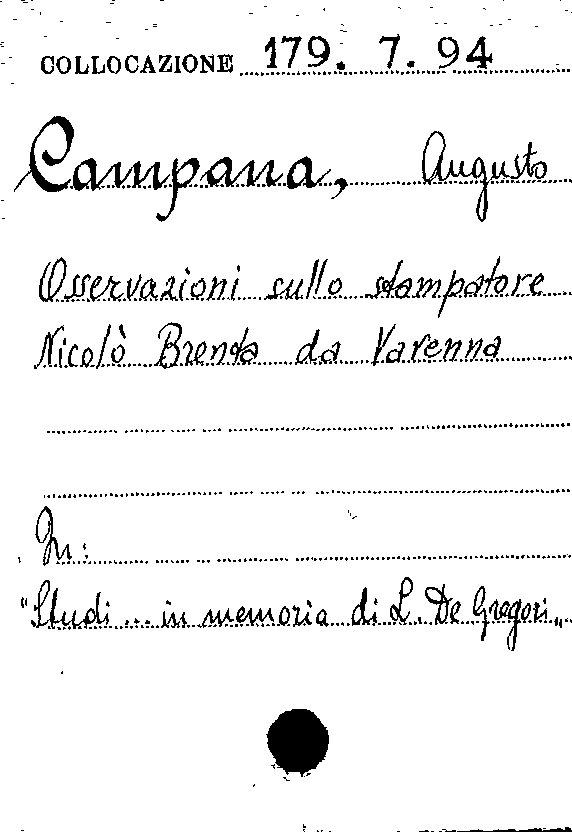 COLLOCAZIONE 179. 7. 94
Campana, Augusto
Osservazioni sullo stampatore
Nicolò Brenta da Varenna
In:
"Studi ... in memoria di L. De Gregori„